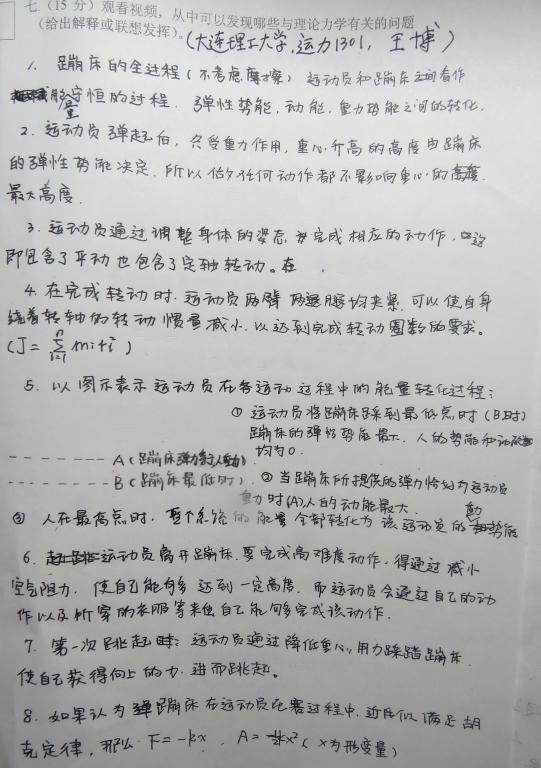 七 (15 分) 观看视频，从中可以发现哪些与理论力学有关的问题
（给出解释或联想发挥）。(大连理工大学,运力1301, 王博)
1. 蹦床的全过程(不考虑摩擦) 运动员和蹦床之间看作
能量守恒的过程. 弹性势能,动能,重力势能之间的转化.
2. 运动员弹起后,只受重力作用,重心升高的高度由蹦床
的弹性势能决定. 所以他的任何动作都不影响重心的
最大高度.
3. 运动员通过调整身体的姿态 来完成相应的动作, 这
即包含了平动也包含了定轴转动。在
4. 在完成转动时. 运动员两臂 两腿均夹紧, 可以使自身
绕着转轴的转动惯量减小. 以达到完成转动圈数的要求。
(J= Σ miri )
5. 以图示表示运动员在各运动过程中的能量转化过程:
① 运动员将蹦床踩到最低点时 (B时)
蹦床的弹性势能最大. 人的势能和动能
均为0.
A (蹦床弹力等于人重力)
B (蹦床最低时)
② 当蹦床所提供的弹力恰好为运动员
重力时(A)人的动能最大.
③ 人在最高点时, 整个系统的能量全部转化为该运动员的势能
6. 运动员离开蹦床.要完成高难度动作, 得通过减小
空气阻力, 使自己能够达到一定高度. 而运动员会通过自己的动
作以及所穿的衣服等来使自己能够完成该动作.
7. 第一次跳起时: 运动员通过降低重心,用力踩踏蹦床.
使自己获得向上的力.进而跳起.
8. 如果认为蹦床在运动员比赛过程中.近似满足胡
克定律, 那么 F=-kx. A= x² ( x为形变量)